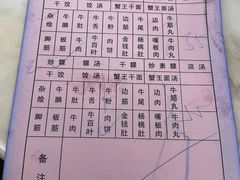 干饺 饺汤 蟹王干面 蟹王面汤
杂烩 牛肉 牛舌 牛粉 边筋 牛尾 牛筋丸
脚筋 板筋 牛百叶 肉饼 金钱肚 杨桃肚 牛肉丸
炒粿 干粿 粿汤 干粿 炒素粿 菜汤
干饺 饺汤 蟹王干面 蟹王面汤
杂烩 牛肉 牛舌 牛粉 边筋 牛尾 嘴板肉 牛筋丸
脚筋 板筋 牛百叶 肉饼 金钱肚 杨桃肚 牛肉丸
备注